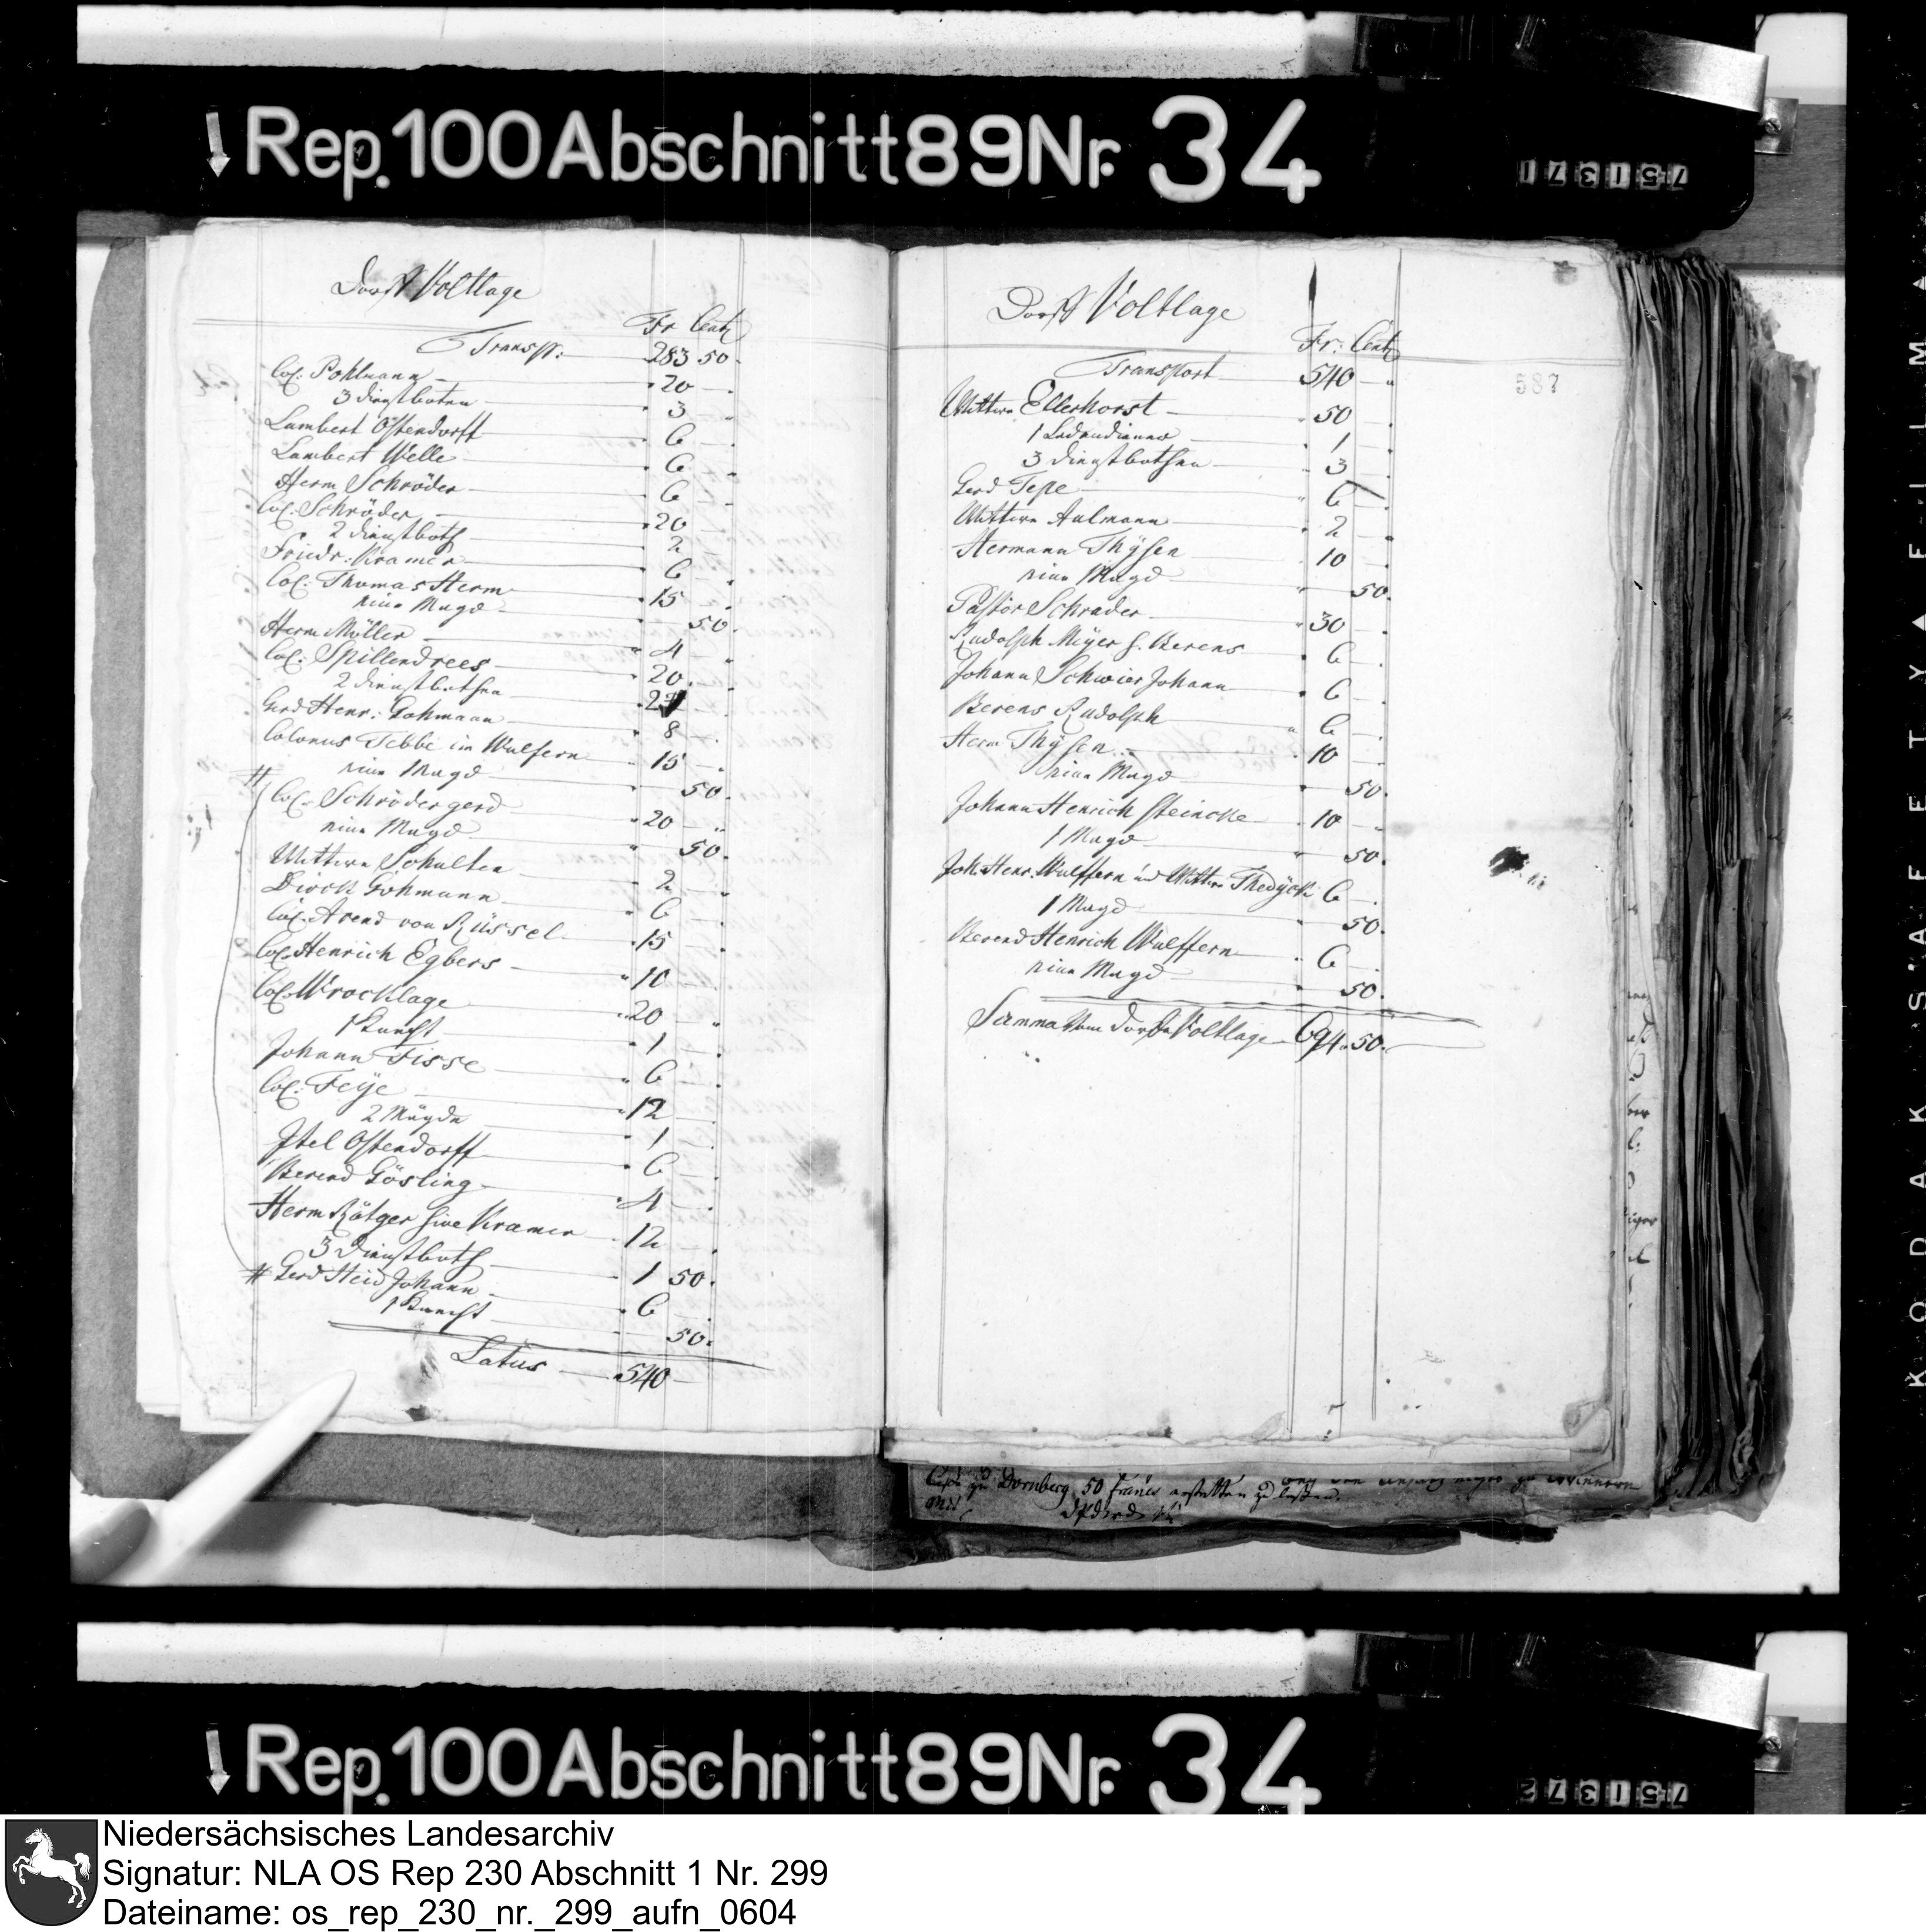 Rep. 100 Abschnitt 89 Nr. 34
751371
Dorff Voltlage
Fr Cent
Transp: 283 50
Col: Pohlmann 20
3 dienstboten 3
Lambert Ostendorff 6
Lambert Welle 6
Herm Schröder 6
Col: Schröder 20
2 dienstboth 2
Friedr: Kramer 6
Col: Thomas Herm 15
eine Magd 50
Herm Möller 4
Col: Spillendrees 20
2 dienstbothen 2
Gerd Henr: Gohmann 8
Colonus Tebbe im Wulfern 15
eine Magd 50
Col: Schrödergerd 20
eine Magd 50
Wittwe Schulten 2
Dirck Gohmann 6
Col: Arend von Rüssel 15
Col: Henrich Egbers 10
Col: Wrocklage 20
1 Knecht 1
Johann Fisse 6
Col: Feije 12
2 Mägde 1
Itel Ostendorff 6
Berend Gösling 4
Herm Rötger sive Kramer 12
3 Dienstboth 1 50
# Gerd Heid Johann 6
1 Knecht 50
Latus 540
Dorff Voltlage
Fr: Cent
587
Transport 540
Wittwe Ellerhorst 50
1 Ladendiener 1
3 dienstbothen 3
Gerd Tepe 6
Wittwe Aulmann 2
Hermann Thÿsen 10
eine Magd 50
Pastor Schrader 30
Rudolph Meÿer g. Berens 6
Johann Schwier Johann 6
Berens Rudolph 6
Herm Thÿsen 10
eine Magd 50
Johann Henrich Steincke 10
1 Magd 50
Joh. Henr. Wulffern und Wittwe Thedÿck 6
1 Magd 50
Berend Henrich Wulffern 6
eine Magd 50
Summa vom Dorfe Voltlage 694 50
zu Dornberg 50 francs
KODAK SAFETY FILM
Rep. 100 Abschnitt 89 Nr. 34
751372
Niedersächsisches Landesarchiv
Signatur: NLA OS Rep 230 Abschnitt 1 Nr. 299
Dateiname: os_rep_230_nr._299_aufn_0604